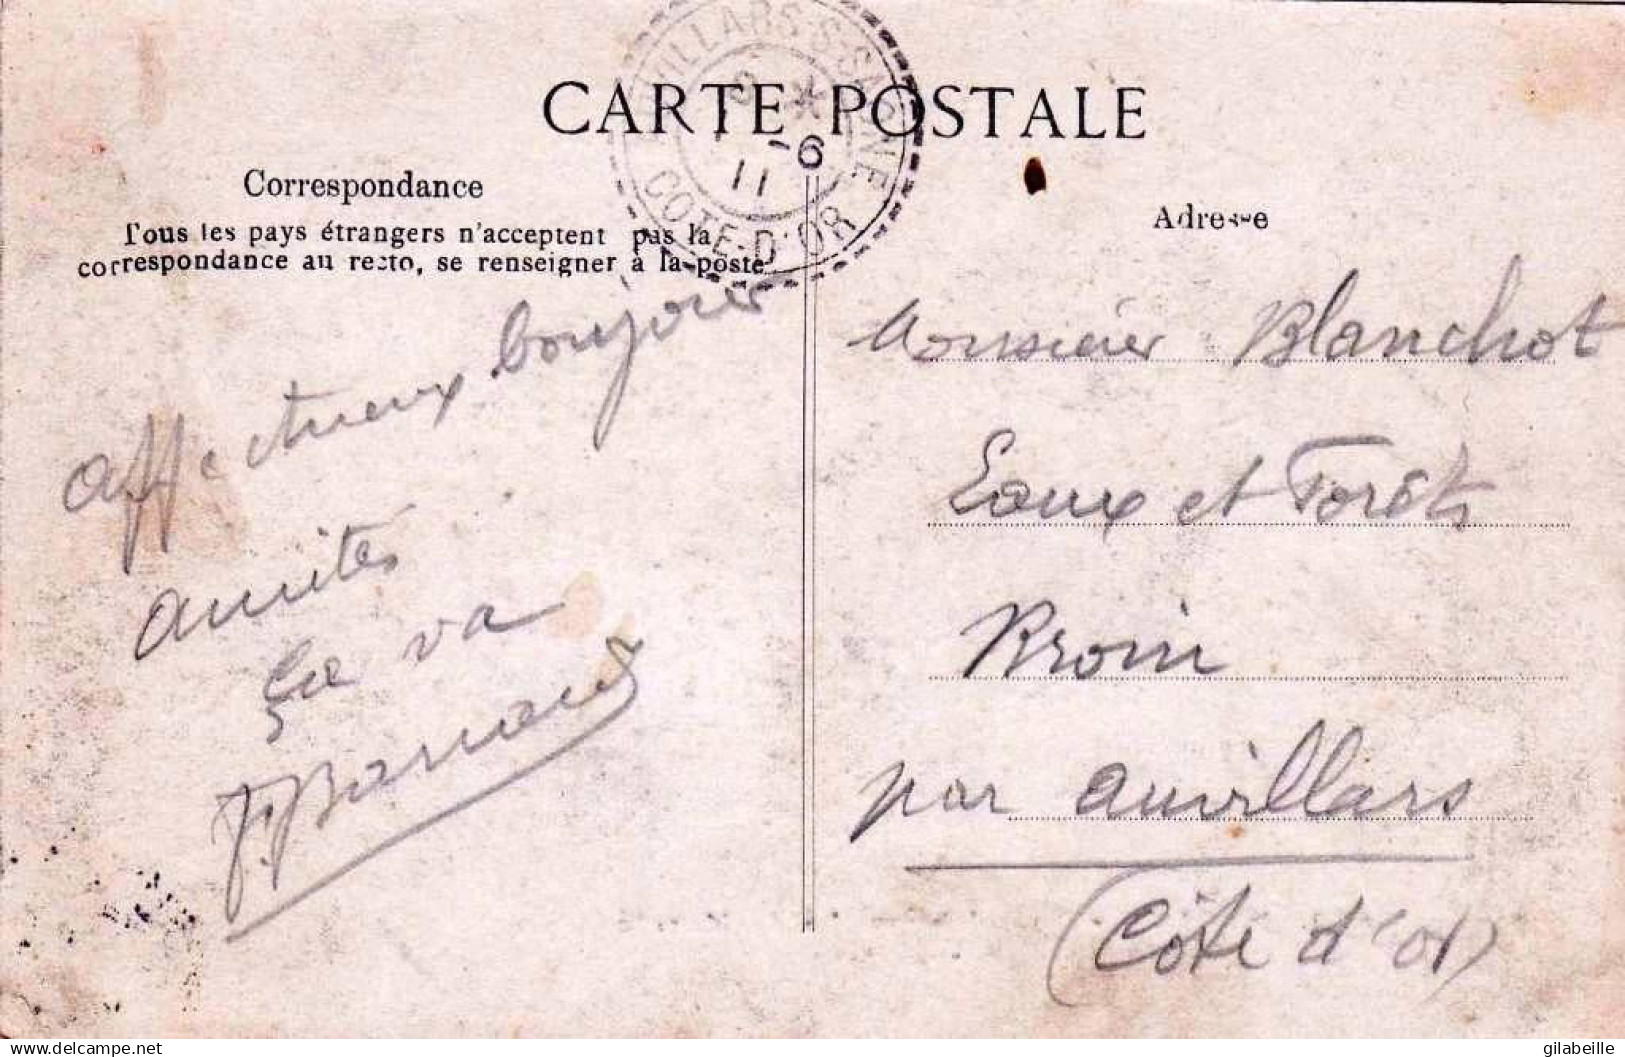 CARTE POSTALE
AUVILLARS-S-SAÔNE
9 *
-6
11
COTE-D'OR
Correspondance
Tous les pays étrangers n'acceptent pas la
correspondance au recto, se renseigner à la poste
Adresse
affectueux bonjour
amitiés
ça va
Monsieur Blanchot
Eaux et Forêts
Broin
par auvillars
(Côte d'or)
gilabeille